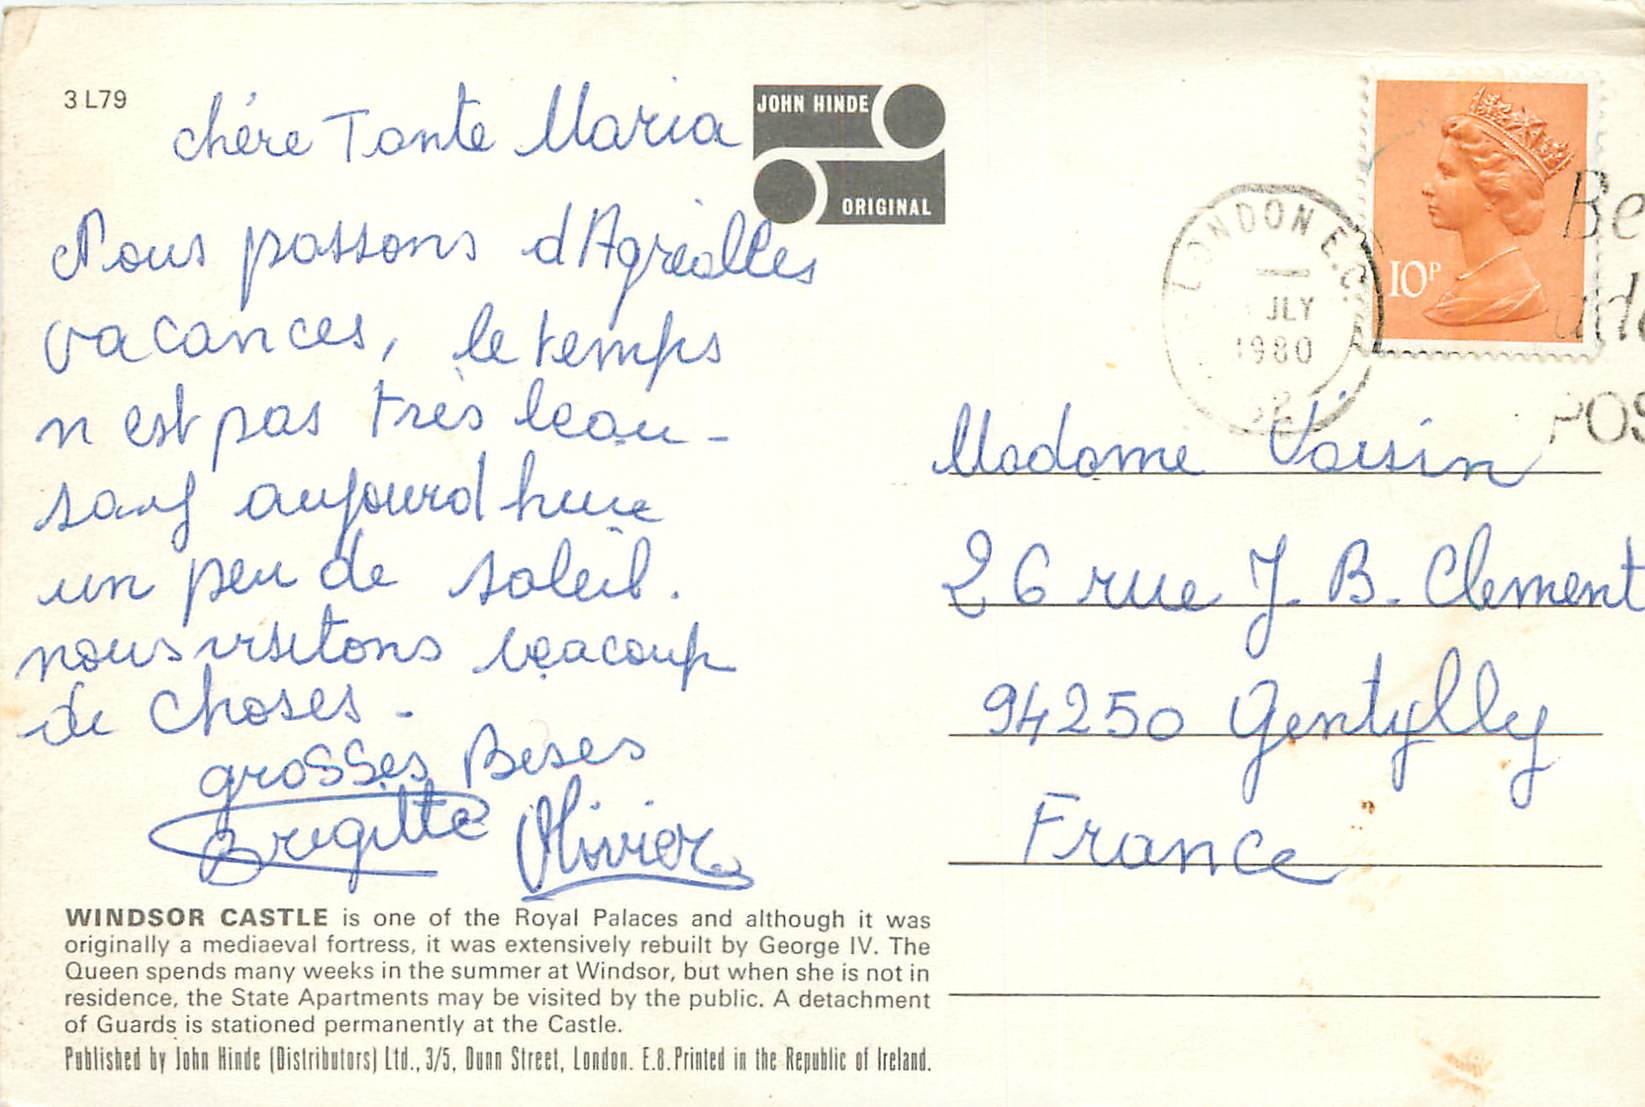 3 L79
chére Tante Maria
JOHN HINDE
ORIGINAL
Nous passons d'Agréalles
vacances, le temps
n est pas très beau -
sauf aujourd huie
un peu de soleil.
nous visitons beacoup
de choses -
grosses Beses
Brigitte Olivier
WINDSOR CASTLE is one of the Royal Palaces and although it was
originally a mediaeval fortress, it was extensively rebuilt by George IV. The
Queen spends many weeks in the summer at Windsor, but when she is not in
residence, the State Apartments may be visited by the public. A detachment
of Guards is stationed permanently at the Castle.
Published by John Hinde (Distributors) Ltd., 3/5, Dunn Street, London. E.8. Printed in the Republic of Ireland.
LONDON E.C.
JLY
1980
10P
Be
POS
Madame Voisin
26 rue J. B. Clement
94250 Gentylly
France